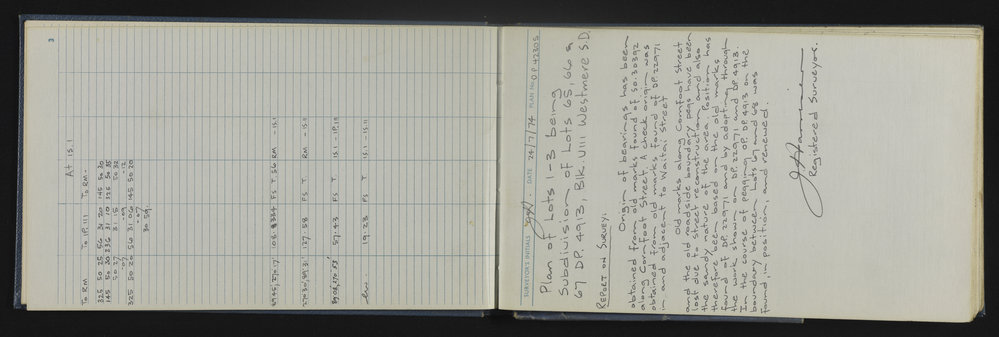 3
At IS.1
To RM - To IP.III To RM -
325 50 25 56 31 20 145 50 30
145 50 30 236 31 10 325 50 35
50 27 31 15 50 32
.07 .09 .12
325 50 20 56 31 06 145 50 20
.07
30 59.
108.8334 FS T. 56 RM - IS.1
127.58 FS T. RM - IS.11
57.43 FS T. IS.1 - IP.19
19.23 FS T. IS.1 - IS.11
SURVEYOR'S INITIALS DATE 24/7/74 PLAN No. D.P. 42305
Plan of Lots 1-3 being
Subdivision of Lots 65, 66 &
67 DP. 4913, Blk. VIII Westmere S.D.
REPORT ON SURVEY:
Origin of bearings has been
obtained from old marks found of SO.30392
along Cornfoot Street. A check origin was
obtained from old marks found of DP.22971
in and adjacent to Waitai Street
Old marks along Cornfoot Street
and the old roadside boundary pegs have been
lost due to street reconstruction and also
the sandy nature of the area. Position has
therefore been based on the old marks
found of DP.22971 and by adopting through
the work shown on DP.22971 and DP.4913.
In the course of pegging OP. DP.4913 on the
boundary between Lots 67 and 68 was
found in position, and renewed.
Registered Surveyor.